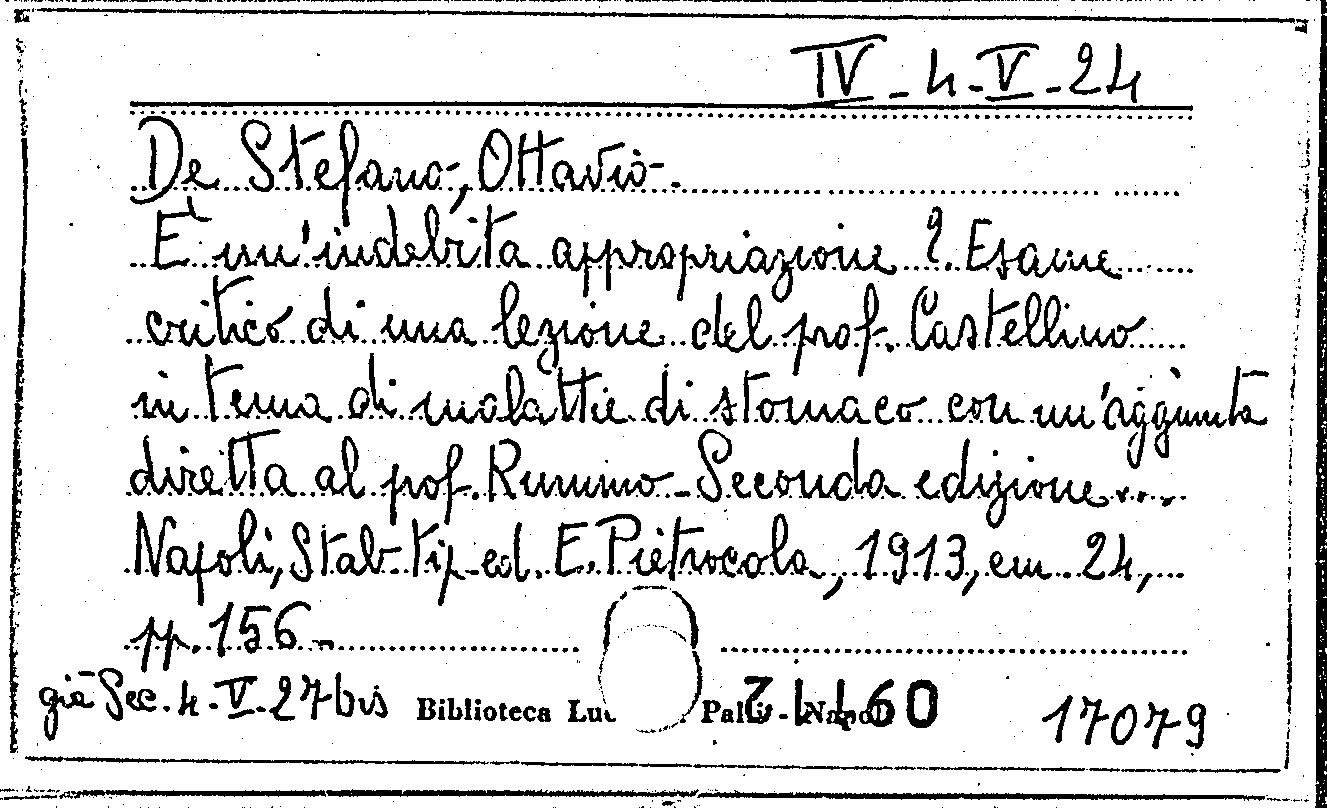 IV - 4 - V - 24
De Stefano, Ottavio.
E' un'indebita appropriazione?. Esame
critico di una lezione del prof. Castellino
in tema di malattie di stomaco con un'aggiunta
diretta al prof. Rummo - Seconda edizione....
Napoli, Stab. Tip. ed. E. Pietrocola, 1913, cm. 24,
pp. 156 -
già Sec. 4 - V - 27 bis Biblioteca 17079